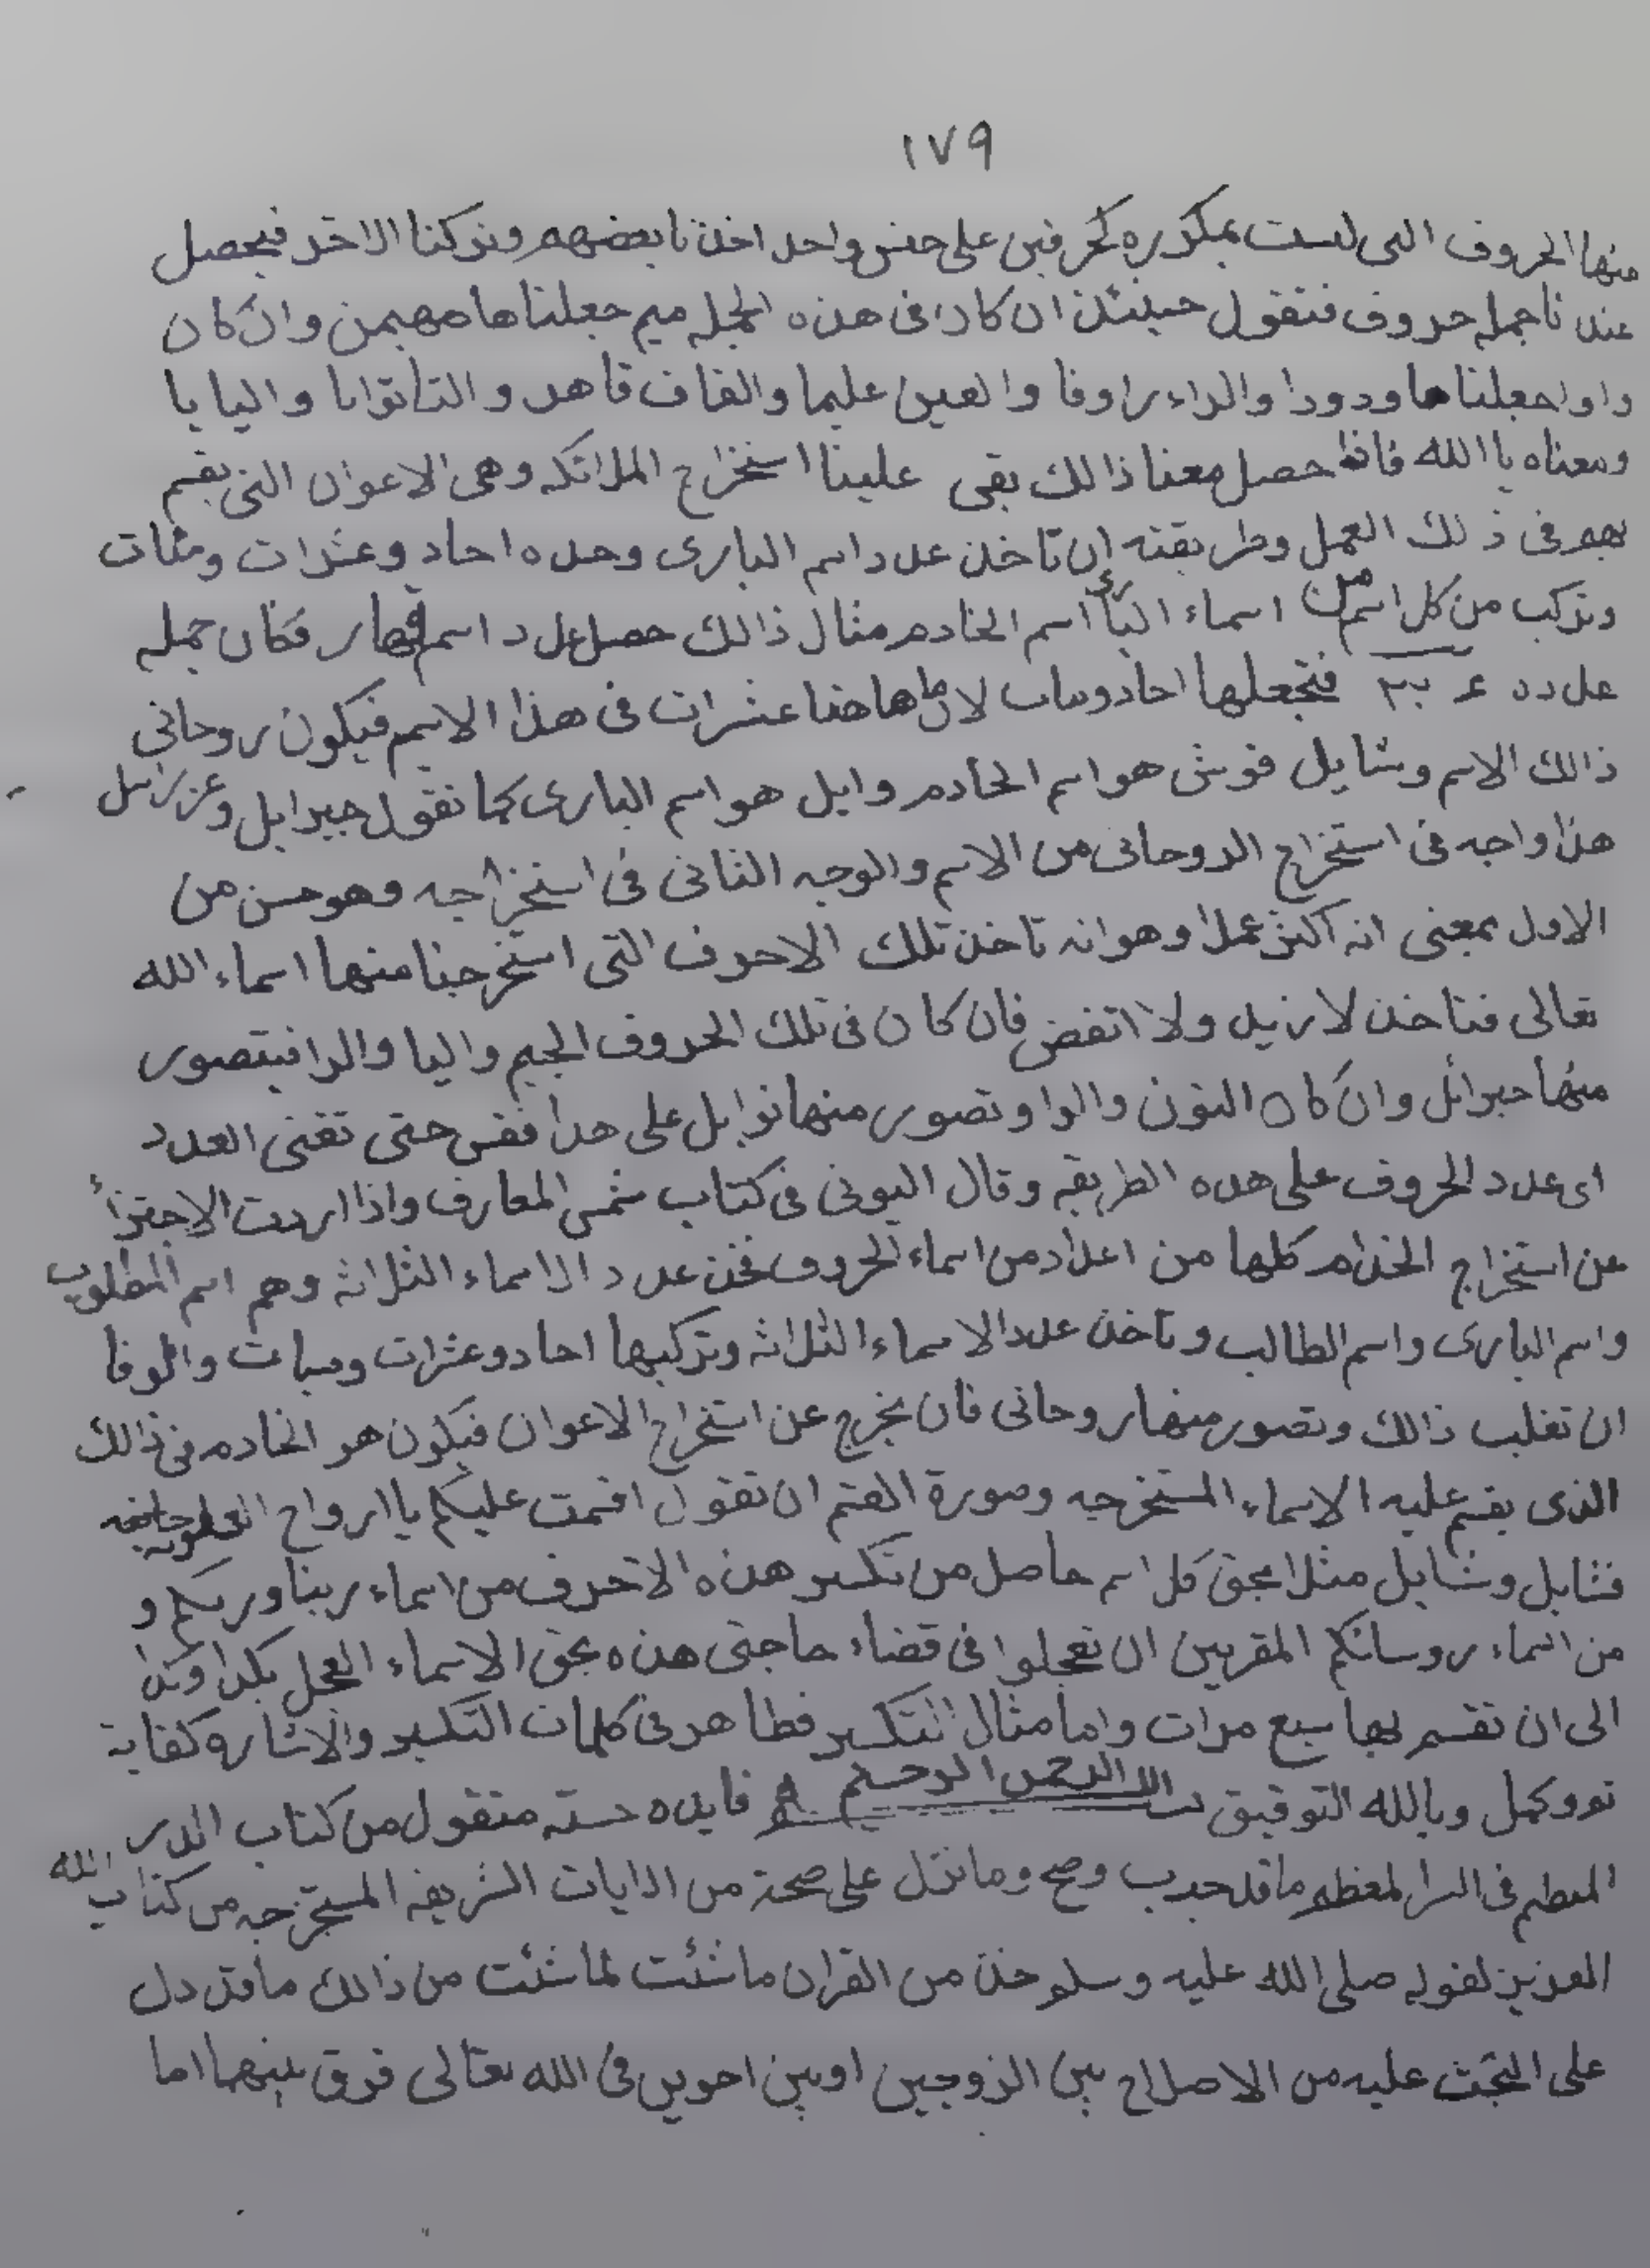 ١٧٩
منها الحروف التى ليست بمكرره كحرفين على جنس واحد اخذنا بعضهم وتركنا الاخر فيحصل
عندنا جمله حروف فنقول حينئذ ان كان فى هذه الجمله ميم جعلناها مهيمن وان كان
واوا جعلناها ودودا والراء راوفا والعين عليما والقاف قاهر والتا توابا واليا يا
ومعناه يا الله فاذا حصل معنا ذالك بقى علينا استخراج الملائكه وهى الاعوان التى يقسم
بهم فى ذلك العمل وطريقته ان تاخذ عدد اسم البارى وحده احاد وعشرات ومئات
وتركب من كل اسم من اسماء البارئ اسم الخادم مثال ذالك حصل عدد اسم قهار فكان جمله
عدده فتجعلها احاد ومات لان ما هاهنا عشرات فى هذا الاسم فيكون روحانى
ذالك الاسم وشايل فوش هو اسم الخادم وايل هو اسم البارى كما نقول جبرايل وعزرايل
هذا واجه فى استخراج الروحانى من الاسم والوجه الثانى فى استخراجه وهو حسن من
الاول بمعنى انه اكثر عملا وهو انه تاخذ تلك الاحرف التى استخرجنا منها اسماء الله
تعالى فتاخذ لا زيد ولا اتفض فان كان فى تلك الحروف الجيم واليا والرا فيتصور
منها جبرائل وان كان النون والواو تصور منها نوايل على هدا فقس حتى تفنى العدد
اى عدد الحروف على هده الطريقه وقال البونى فى كتاب شمس المعارف واذا اردت الاجتزأ
عن استخراج الخدام كلها من اعداد من اسماء الحروف فخذ عدد الاسماء الثلاثه وهم اسم المطلوب
واسم البارى واسم الطالب وتاخذ عدد الاسماء الثلاثه وتركبها احاد وعشرات وميات والوفا
ان تغلب ذالك وتصور منها روحانى فان يخرج عن استخراج الاعوان فيكون هو الخادم فى ذالك
الذى يقسم عليه الاسماء المستخرجه وصورة القسم ان تقول اقسمت عليكم يا ارواح العلويه
فثايل وشايل مثلا بحق كل اسم حاصل من تكسير هذه الاحرف من اسماء ربنا وربكم و
من اسماء روسائكم المقربين ان تعجلوا فى قضاء حاجتى هذه بحق الاسماء العجل بكدا وكدا
الى ان تقسم بها سبع مرات واما مثال التكسير فطاهر فى كلمات التكسير والاشاره كفاية
تم وكمل وبالله التوفيق بسم الله الرحمن الرحيم فايده حسنه منقول من كتاب الدر
المنظم فى السر المعظم ما قد جرب وصح وما نزل على صحة من الايات الشريفه المستخرجه من كتاب الله
العزيز لقوله صلى الله عليه وسلم خذ من القران ما شئت لما شئت من ذالك ما قد دل
على البحث عليه من الاصلاح بين الزوجين او بين اخوين فى الله تعالى فرق بينهما اما